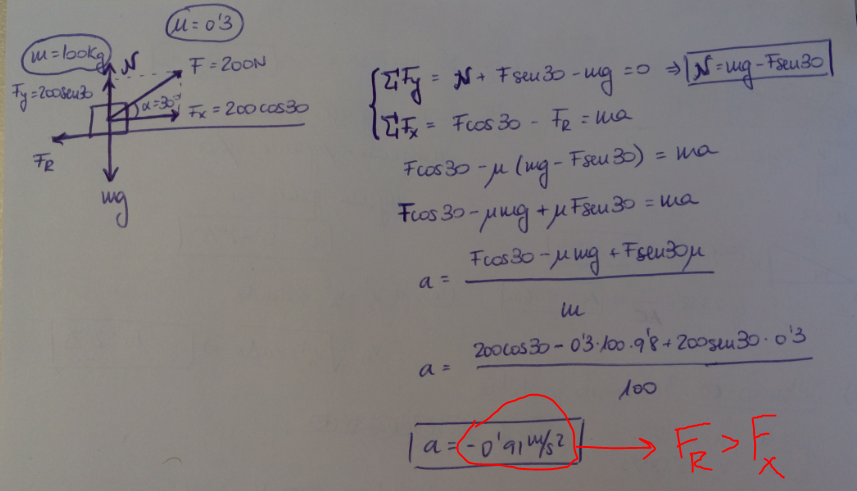 μ = 0'3
m = 100Kg
N
F = 200N
Fy = 200sen30
α = 30°
Fx = 200cos30
FR
mg
ΣFy = N + Fsen30 - mg = 0 ⇒ N = mg - Fsen30
ΣFx = Fcos30 - FR = ma
Fcos30 - μ (mg - Fsen30) = ma
Fcos30 - μmg + μFsen30 = ma
a = Fcos30 - μmg + Fsen30μ
m
a = 200cos30 - 0'3·100·9'8 + 200sen30·0'3
100
a = -0'91 m/s² → FR > Fx